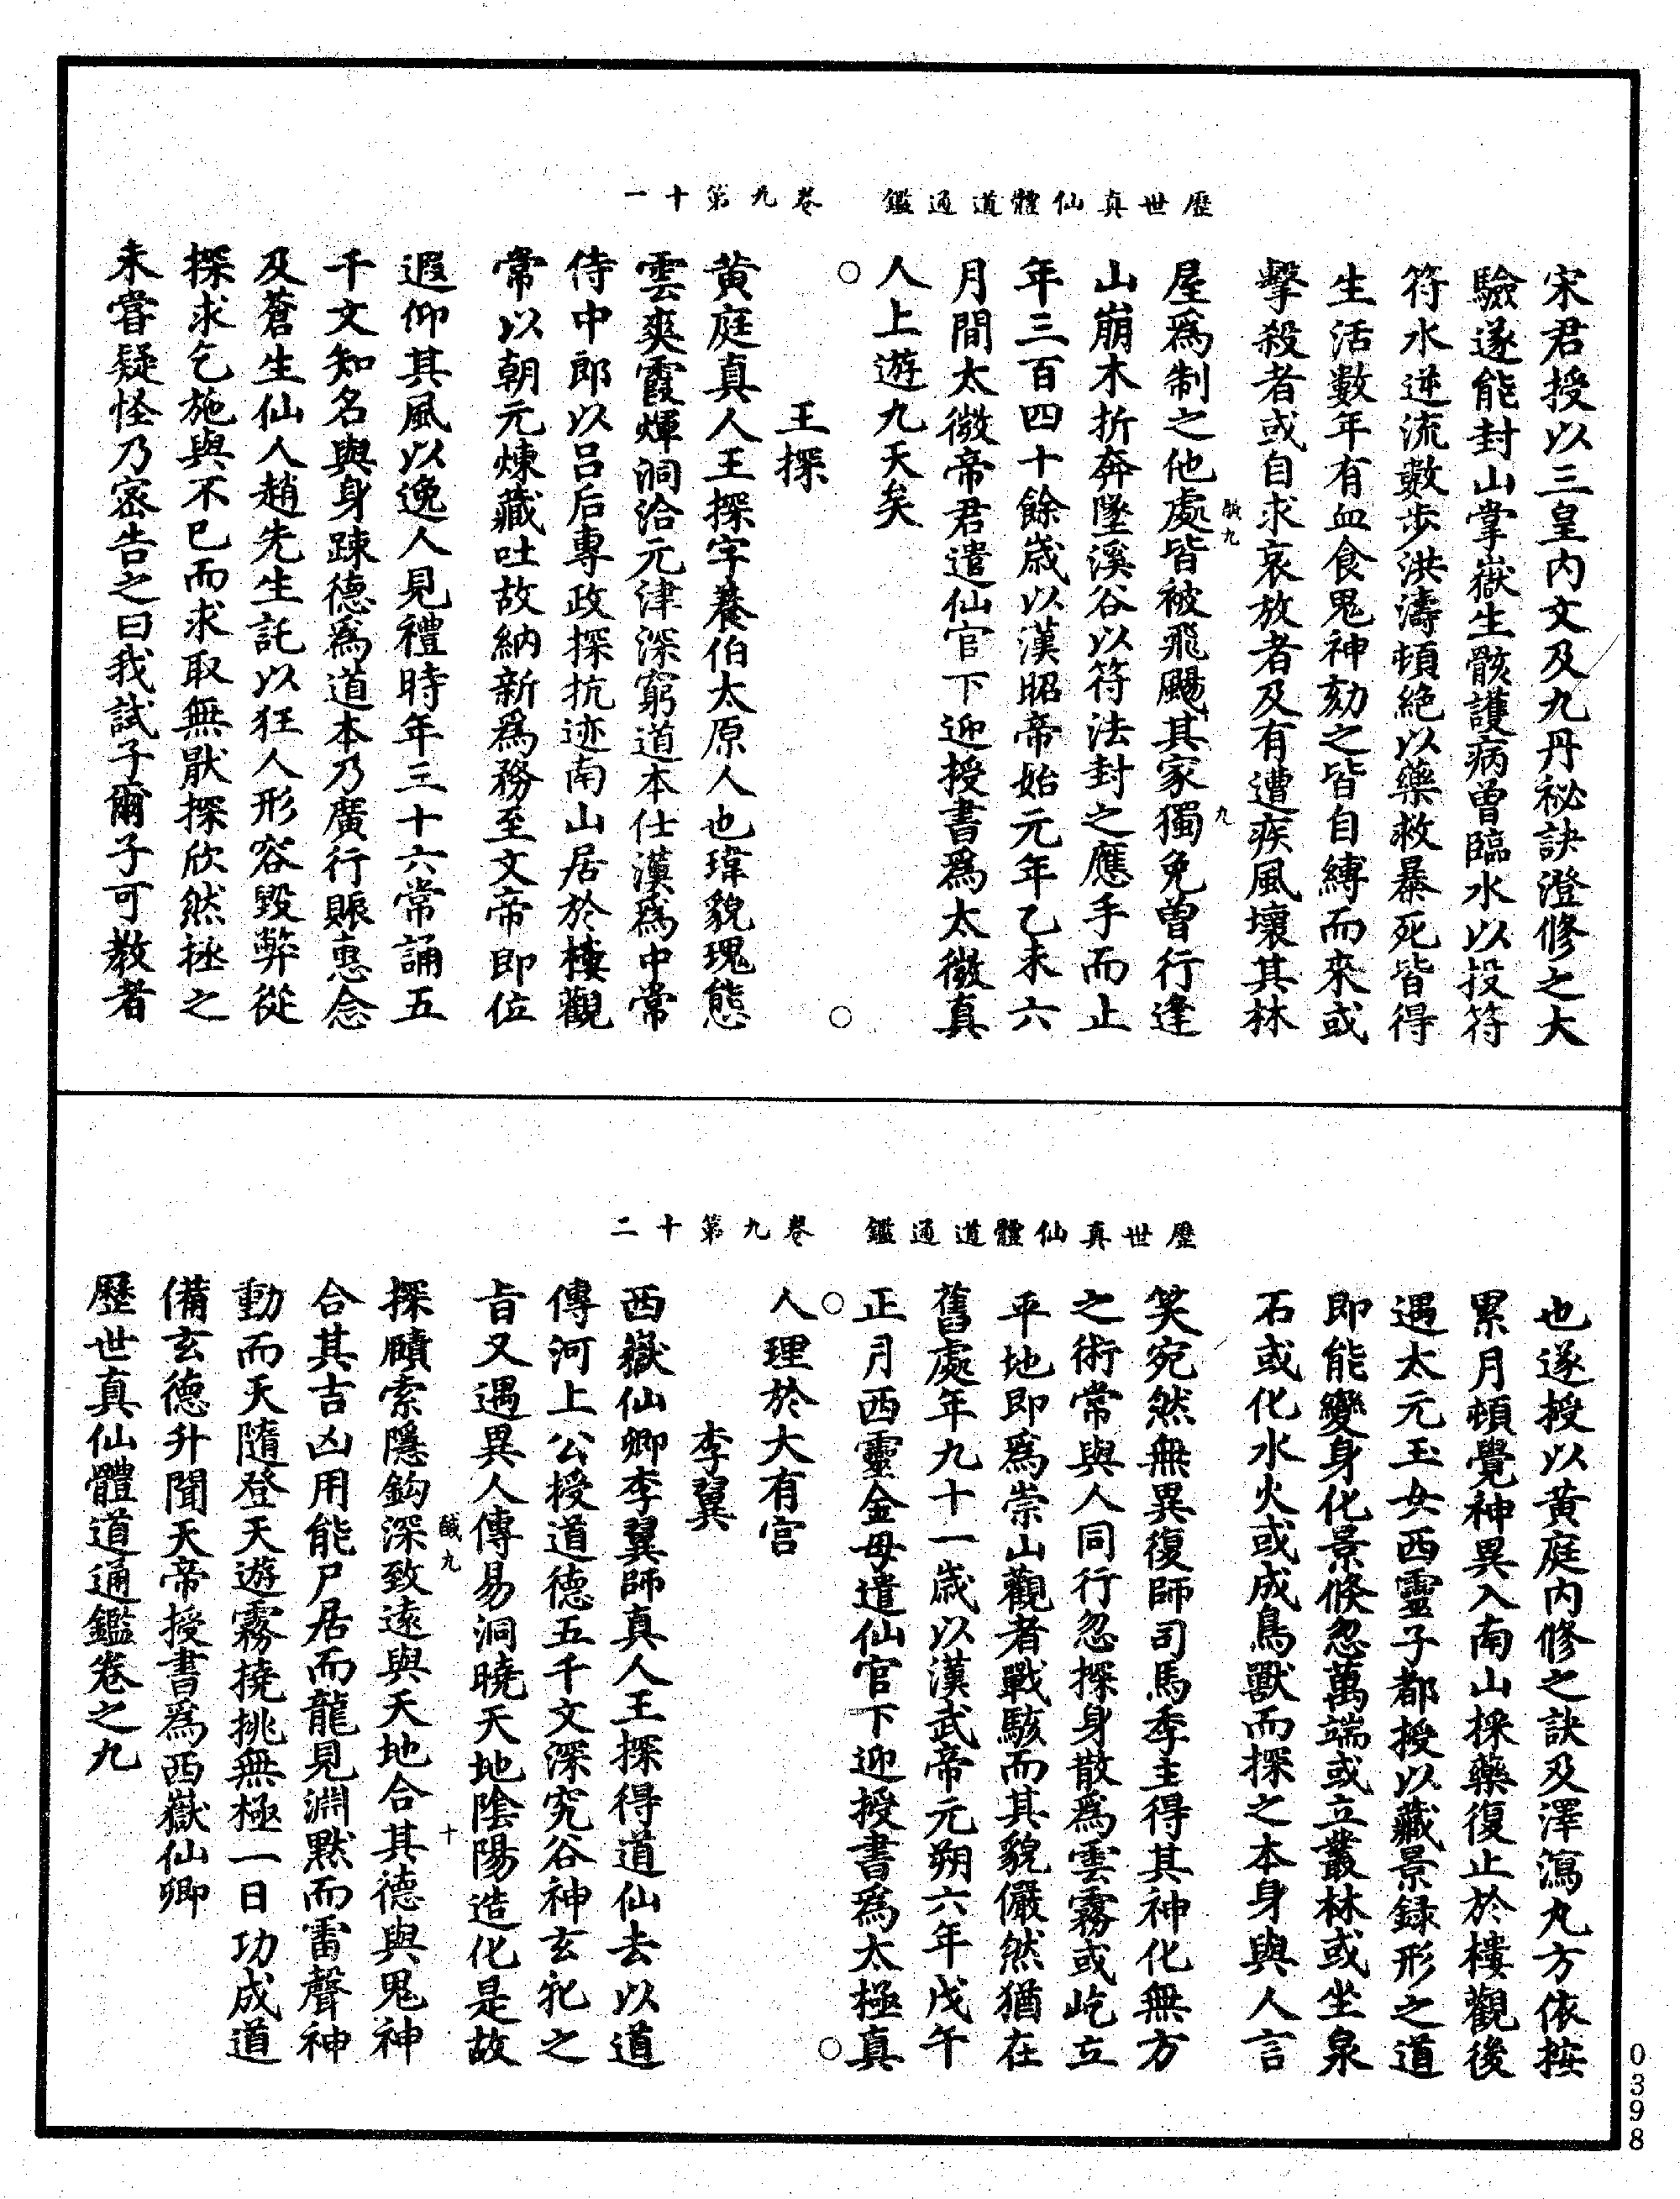 歷世真仙體道通鑑　卷九第十一
宋君授以三皇内文及九丹祕訣澄修之大
驗遂能封山掌嶽生骸護病曾臨水以投符
符水逆流數步洪濤頓絶以藥救暴死皆得
生活數年有血食鬼神劾之皆自縛而來或
擊殺者或自求哀放者及有遭疾風壞其林
屋爲制之他處皆被飛颺其家獨免曾行逢
山崩木折奔墜溪谷以符法封之應手而止
年三百四十餘歲以漢昭帝始元年乙未六
月間太微帝君遣仙官下迎授書爲太微真
人上遊九天矣
王探
黄庭真人王探字養伯太原人也瑋貌瑰態
雲爽霞煇洞洽元津深窮道本仕漢爲中常
侍中郎以吕后專政探抗迹南山居於樓觀
常以朝元煉藏吐故納新爲務至文帝即位
遐仰其風以逸人見禮時年三十六常誦五
千文知名與身踈德爲道本乃廣行賑惠念
及蒼生仙人趙先生託以狂人形容毀弊從
探求乞施與不已而求取無猒探欣然拯之
未甞疑怪乃密告之曰我試子爾子可教者
歷世真仙體道通鑑　卷九第十二
也遂授以黄庭内修之訣及澤瀉丸方依按
累月頓覺神異入南山採藥復止於樓觀後
遇太元玉女西靈子都授以藏景録形之道
即能變身化景倐忽萬端或立叢林或坐泉
石或化水火或成鳥獸而探之本身與人言
笑宛然無異復師司馬季主得其神化無方
之術常與人同行忽探身散爲雲霧或屹立
平地即爲崇山觀者戰駭而其貌儼然猶在
舊處年九十一歲以漢武帝元朔六年戊午
正月西靈金母遣仙官下迎授書爲太極真
人理於大有宫
李翼
西嶽仙卿李翼師真人王探得道仙去以道
傳河上公授道德五千文深究谷神玄牝之
旨又遇異人傳易洞曉天地陰陽造化是故
探賾索隱鈎深致遠與天地合其德與鬼神
合其吉凶用能尸居而龍見淵默而雷聲神
動而天隨登天遊霧撓挑無極一日功成道
備玄德升聞天帝授書爲西嶽仙卿
歷世真仙體道通鑑卷之九
鹹九
九
鹹九
十
0398